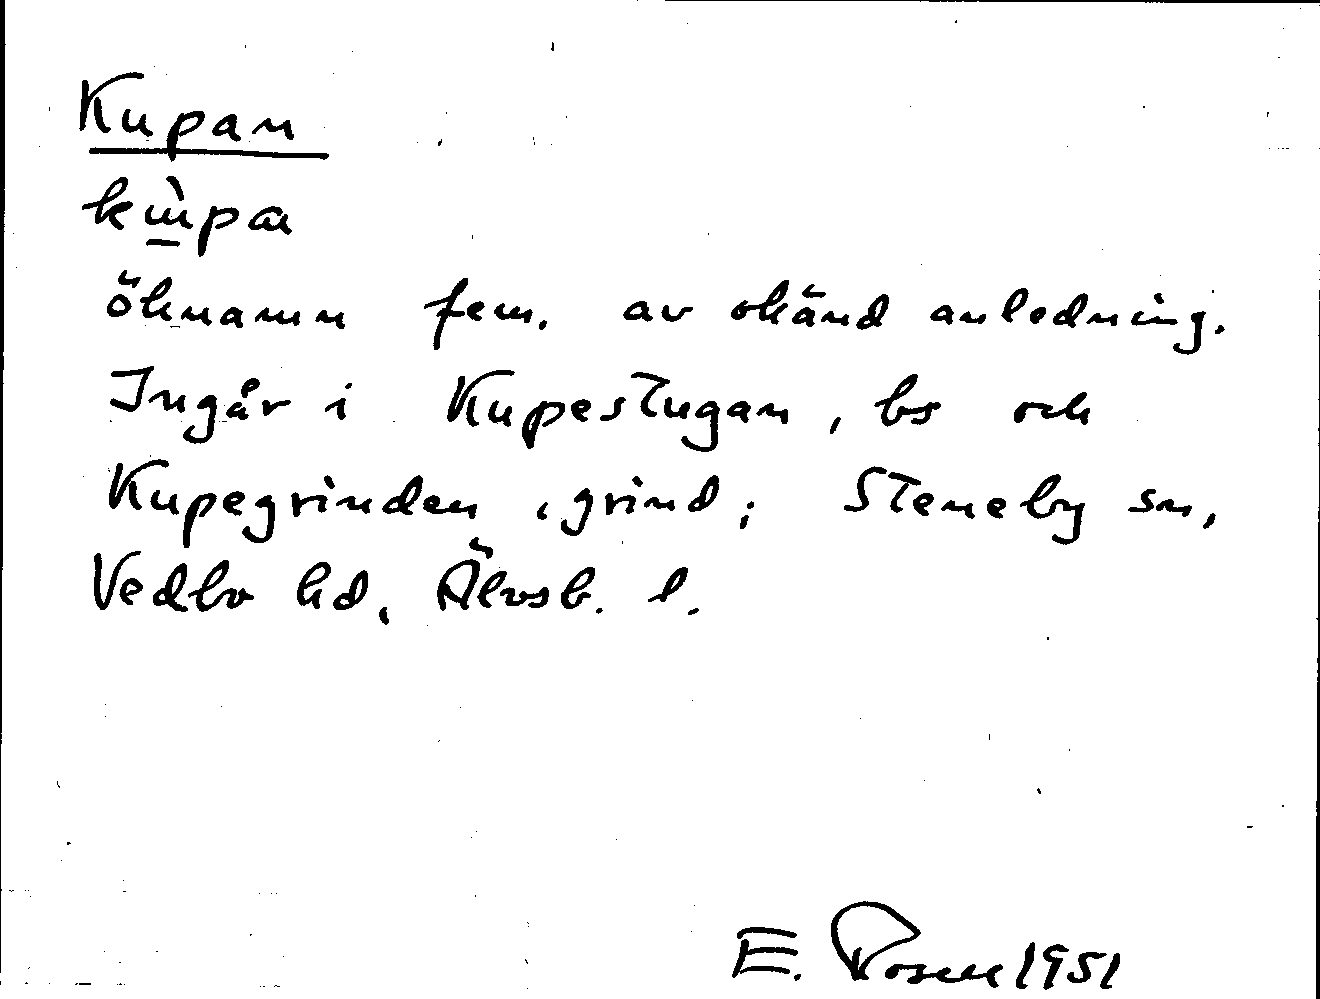 Kupan
öknamn fem. av okänd anledning.
Ingår i Kupestugan, bs och
Kupegrinden, grind; Steneby sn,
Vedbo hd, Älvsb. l.
E. Rosell 1951